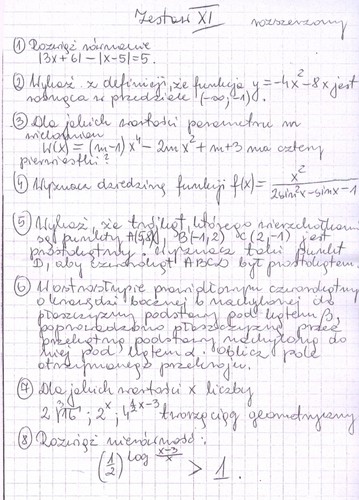 Zestaw XI rozszerzony
① Rozwiąż równanie
|3x+6| - |x-5| = 5.
② Wykaż z definicji, że funkcja y = -4x² - 8x jest
rosnąca w przedziale (-∞, -1).
③ Dla jakich wartości parametru m
wielomian
W(x) = (m-1)x⁴ - 2mx² + m+3 ma cztery
pierwiastki?
④ Wyznacz dziedzinę funkcji f(x) = x² / (2sin²x - sinx - 1)
⑤ Wykaż, że trójkąt, którego wierzchołkami
są punkty A(5,8), B(-1,2) C(2,-1) jest
prostokątny. Wyznacz taki punkt
D, aby czworokąt ABCD był prostokątem.
⑥ W ostrosłupie prawidłowym czworokątnym
o krawędzi bocznej b nachylonej do
płaszczyzny podstawy pod kątem β,
poprowadzono płaszczyznę przez
przekątną podstawy nachyloną do
niej pod kątem α. Oblicz pole
otrzymanego przekroju.
⑦ Dla jakich wartości x liczby
2 ∛16 ; 2ˣ ; 4^(½x-3) tworzą ciąg geometryczny
⑧ Rozwiąż nierówność:
(1/2)^(log (x-3)/x) > 1.